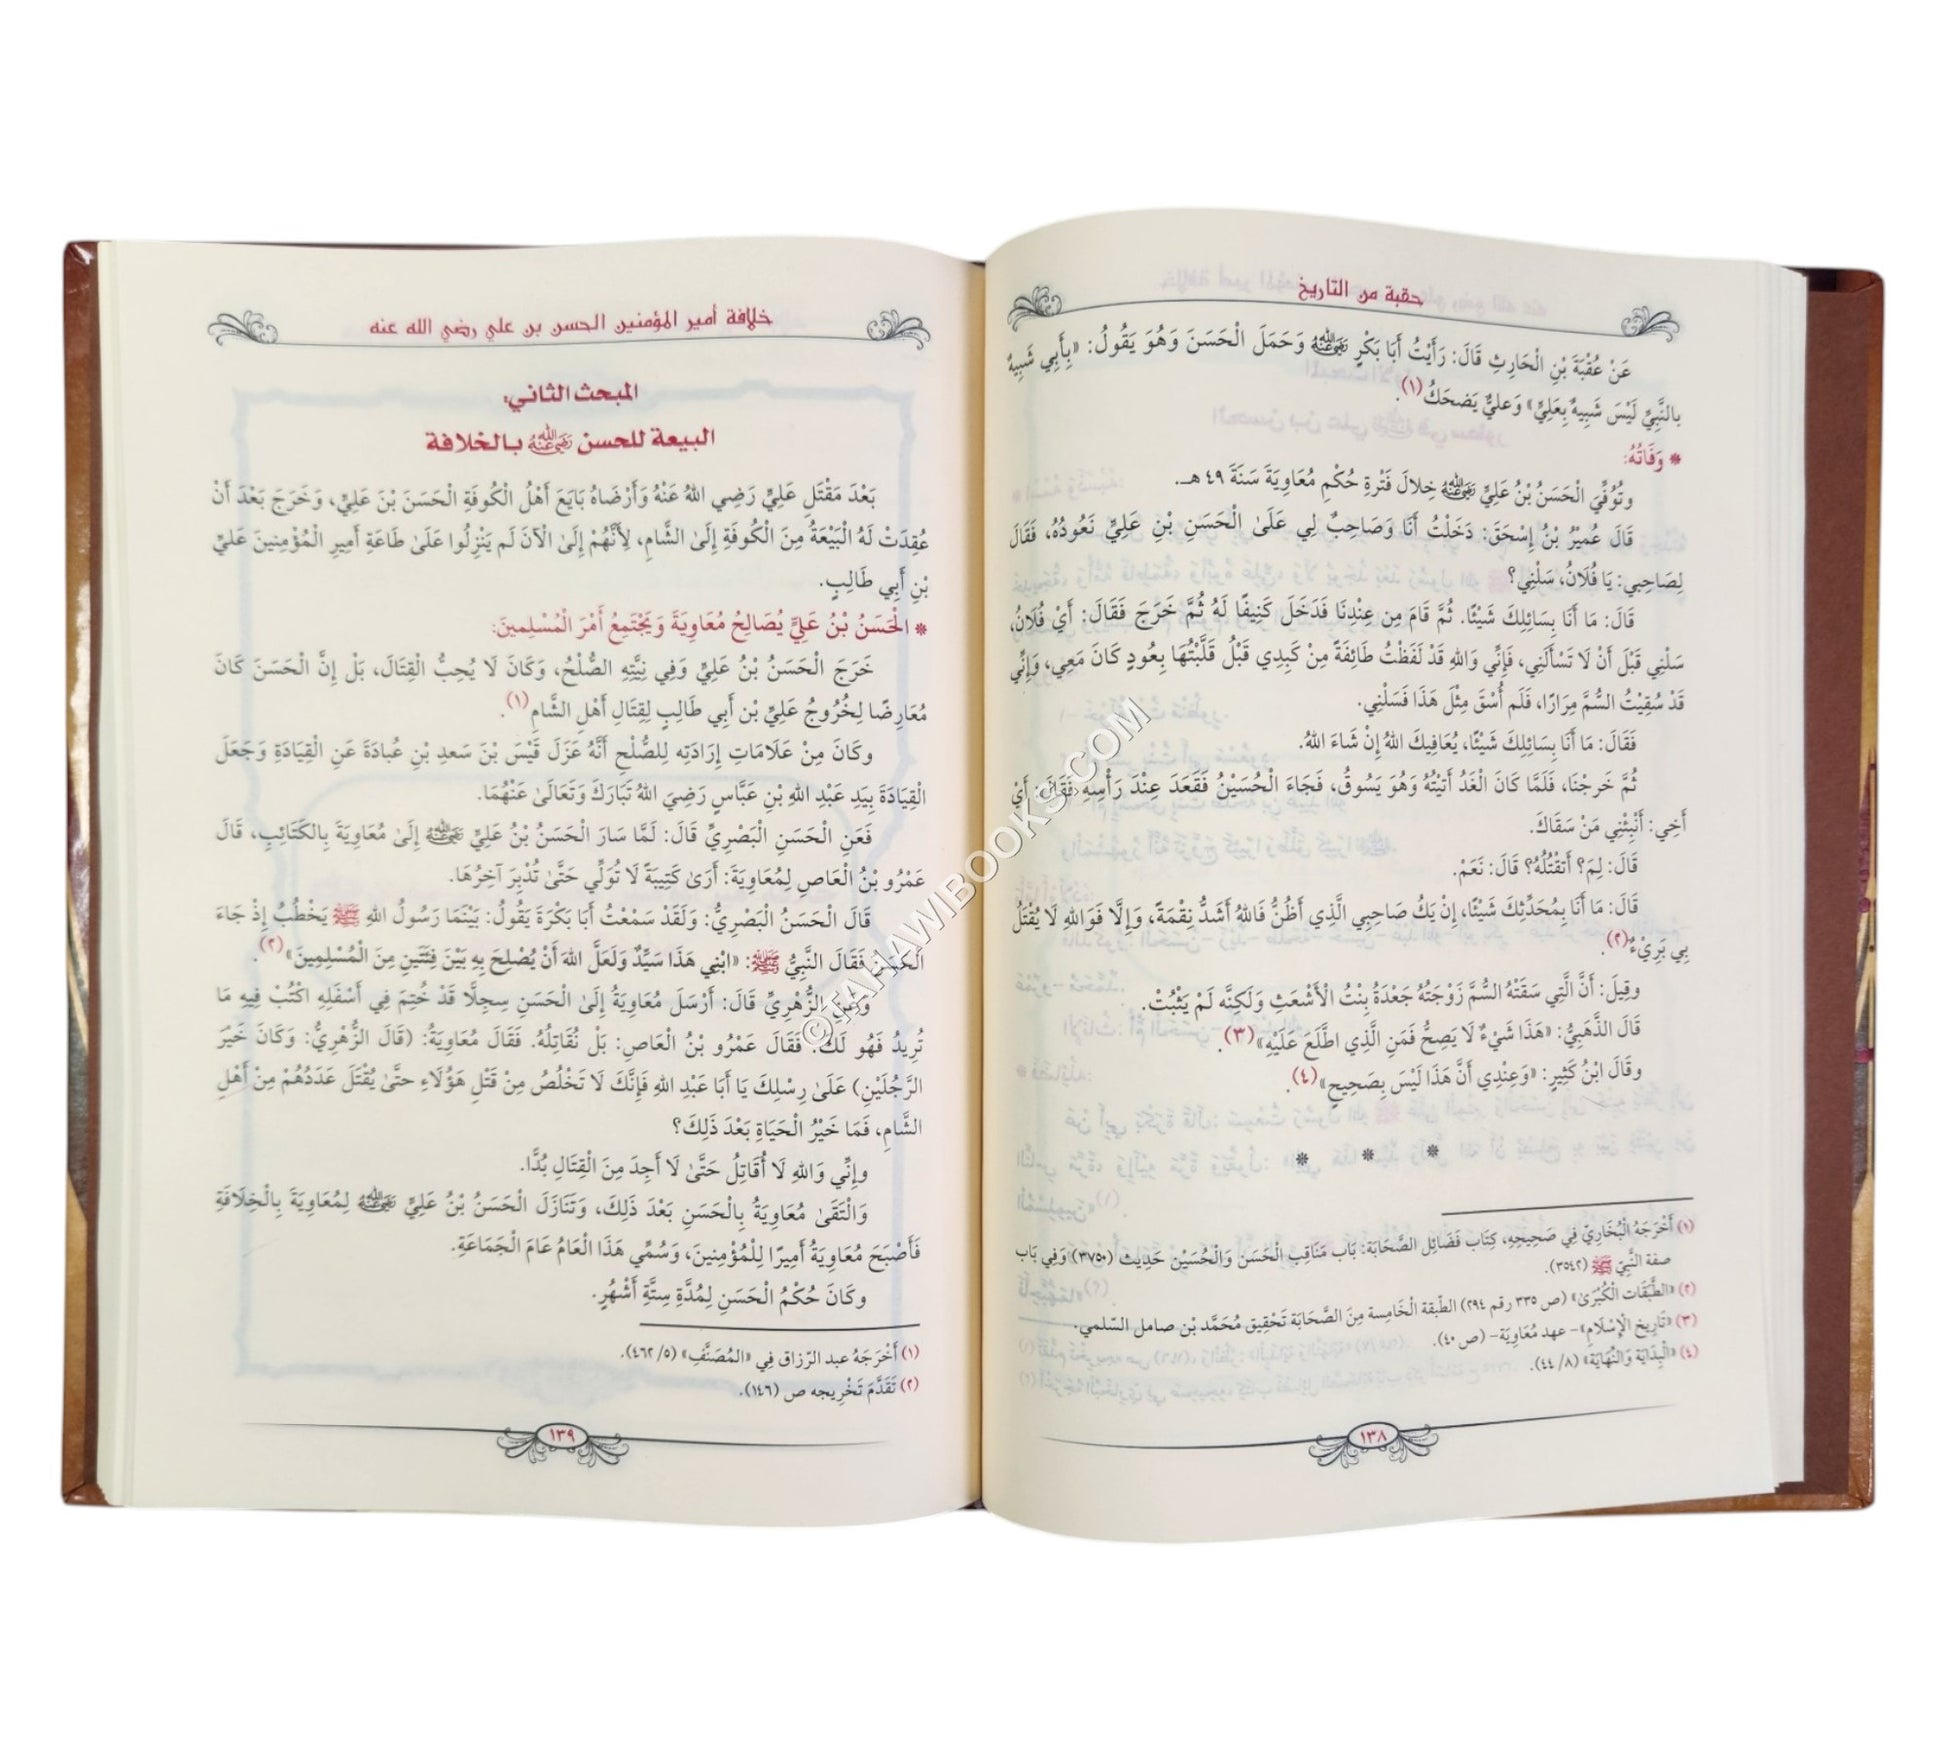 حقبة من التاريخ
عَنْ عُقْبَةَ بْنِ الْحَارِثِ قَالَ: رَأَيْتُ أَبَا بَكْرٍ رضي الله عنه وَحَمَلَ الْحَسَنَ وَهُوَ يَقُولُ: «بِأَبِي شَبِيهٌ
بالنَّبِيِّ لَيْسَ شَبِيهٌ بِعَلِيٍّ» وَعَليٌّ يَضحَكُ(١).
* وَفَاتُهُ:
وتُوُفِّيَ الْحَسَنُ بْنُ عَلِيٍّ رضي الله عنه خِلالَ فَتْرةِ حُكْمِ مُعَاوِيَةَ سَنَةَ ٤٩ هـ.
قَالَ عُميْرُ بْنُ إِسْحَقَ: دَخَلْتُ أَنَا وَصَاحِبٌ لِي عَلَىٰ الْحَسَنِ بْنِ عَلِيٍّ نَعُودُهُ، فَقَالَ
لِصَاحِبي: يَا فُلَانُ، سَلْنِي؟
قَالَ: مَا أَنَا بِسَائِلِكَ شَيْئًا. ثُمَّ قَامَ مِن عِنْدِنَا فَدَخَلَ كَنِيفًا لَهُ ثُمَّ خَرَجَ فَقَالَ: أَيْ فُلَانُ،
سَلْنِي قَبْلَ أَنْ لَا تَسْأَلَنِي، فَإِنِّي وَاللهِ قَدْ لَفَظْتُ طَائِفَةً مِنْ كَبِدِي قَبْلُ قَلَّبْتُهَا بِعُودٍ كَانَ مَعِي، وَإِنِّي
قَدْ سُقِيْتُ السُّمَّ مِرَارًا، فَلَم أُسْقَ مِثْلَ هَذَا فَسَلْنِي.
فَقَالَ: مَا أَنَا بِسَائِلِكَ شَيْئًا، يُعَافِيكَ اللهُ إِنْ شَاءَ اللهُ.
ثُمَّ خَرجْنَا، فَلَمَّا كَانَ الْغَدُ أَتَيْتُهُ وَهُوَ يَسُوقُ، فَجَاءَ الْحُسَيْنُ فَقَعَدَ عِنْدَ رَأْسِهِ فَقَالَ: أَيْ
أَخِي: أَنْبِئْنِي مَنْ سَقَاكَ.
قَالَ: لِمَ؟ أَتَقْتُلُهُ؟ قَالَ: نَعَمْ.
قَالَ: مَا أَنَا بِمُحَدِّثِكَ شَيْئًا، إِنْ يَكُ صَاحِبِي الَّذِي أَظُنُّ فَاللهُ أَشَدُّ نِقْمَةً، وَإِلَّا فَوَاللهِ لَا يُقْتَلُ
بِي بَرِيْءٌ(٢).
وقِيلَ: أَنَّ الَّتِي سَقَتْهُ السُّمَّ زَوْجَتُهُ جَعْدَةُ بِنْتُ الْأَشْعَثِ وَلَكِنَّه لَمْ يَثْبُتْ.
قَالَ الذَّهَبِيُّ: «هَذَا شَيْءٌ لَا يَصِحُّ فَمَنِ الَّذِي اطَّلَعَ عَلَيْهِ»(٣).
وقَالَ ابْنُ كَثِيرٍ: «وَعِنْدِي أَنَّ هَذَا لَيْسَ بِصَحِيحٍ»(٤).
* * *
(١) أَخْرَجَهُ الْبُخَارِيُّ فِي صَحِيحِهِ، كِتَاب فَضَائِل الصَّحَابَة: بَاب مَنَاقِب الْحَسَن وَالْحُسَيْن حَدِيث (٣٧٥٠) وَفِي بَاب
صفة النَّبِيِّ ﷺ (٣٥٤٢).
(٢) «الطَّبَقَات الْكُبْرَىٰ» (ص ٣٣٥ رقم ٢٩٤) الطّبقة الْخَامِسة مِنَ الصَّحَابَة تَحْقِيق مُحَمَّد بْن صامل السّلمي.
(٣) «تَارِيخ الإِسْلَام» - عهد مُعَاوِيَة- (ص ٤٠).
(٤) «الْبِدَايَة وَالنِّهَايَة» (٨/ ٤٤).
١٣٨
خلافة أمير المؤمنين الحسن بن علي رضي الله عنه
المبحث الثاني:
البيعة للحسن رضي الله عنه بالخلافة
بَعْدَ مَقْتَلِ عَلِيٍّ رَضِي اللهُ عَنْهُ وَأَرْضَاهُ بَايَعَ أَهْلُ الْكُوفَةِ الْحَسَنَ بْنَ عَلِيٍّ، وَخَرَجَ بَعْدَ أَنْ
عُقِدَتْ لَهُ الْبَيْعَةُ مِنَ الْكُوفَةِ إِلَىٰ الشَّامِ، لِأَنَّهُمْ إِلَىٰ الْآنَ لَم يَنْزِلُوا عَلَىٰ طَاعَةِ أَمِيرِ الْمُؤْمِنِينَ عَلَيِّ
بْنِ أَبِي طَالِبٍ.
* الْحَسَنُ بْنُ عَلِيٍّ يُصَالِحُ مُعَاوِيَةَ وَيَجْتَمِعُ أَمْرَ الْمُسْلِمينَ:
خَرَجَ الْحَسَنُ بْنُ عَلِيٍّ وَفِي نِيَّتِهِ الصُّلْحُ، وَكَانَ لَا يُحِبُّ الْقِتَالَ، بَلْ إِنَّ الْحَسَنَ كَانَ
مُعَارِضًا لِخُرُوجُ عَلِيِّ بْنِ أَبِي طَالِبٍ لِقِتَالِ أَهْلِ الشَّامِ(١).
وكَانَ مِنْ عَلَامَاتِ إِرَادَتِه لِلصُّلْحِ أَنَّهُ عَزَلَ قَيْسَ بْنَ سَعدِ بْنِ عُبادَةَ عَنِ الْقِيَادَةِ وَجَعَلَ
الْقِيَادَةَ بِيَدِ عَبْدِ اللهِ بْنِ عَبَّاسٍ رَضِيَ اللهُ تَبَارَكَ وَتَعَالَىٰ عَنْهُمَا.
فَعَنِ الْحَسَنِ الْبَصْرِيِّ قَالَ: لَمَّا سَارَ الْحَسَنُ بْنُ عَلِيٍّ رضي الله عنه إِلَىٰ مُعَاوِيَةَ بِالكَتَائِبِ، قَالَ
عَمْرُو بْنُ الْعَاصِ لِمُعَاوِيَةَ: أَرَىٰ كَتِيبَةً لَا تُوَلِّي حَتَّىٰ تُدْبِرَ آخِرُهَا.
قَالَ الْحَسَنُ الْبَصْرِيُّ: وَلَقَدْ سَمْعْتُ أَبَا بَكْرَةَ يَقُولُ: بَيْنَمَا رَسُولُ اللهِ ﷺ يَخْطُبُ إِذْ جَاءَ
الْحَسَنُ فَقَالَ النَّبِيُّ ﷺ: «ابْنِي هَذَا سَيِّدٌ وَلَعَلَّ اللهَ أَنْ يُصْلِحَ بِهِ بَيْنَ فِئَتَينِ مِنَ الْمُسْلِمِينَ»(٢).
وعَنِ الزُّهْرِيِّ قَالَ: أَرْسَلَ مُعَاوِيَةُ إِلَىٰ الْحَسَنِ سِجِلًّا قَدْ خُتِمَ فِي أَسْفَلِهِ اكْتُبْ فِيهِ مَا
تُرِيدُ فَهُو لَكَ. فَقَالَ عَمْرُو بْنُ الْعَاصِ: بَلْ نُقَاتِلُهُ. فَقَالَ مُعَاوِيَةُ: (قَالَ الزُّهْرِيُّ: وَكَانَ خَيْرَ
الرَّجُلَيْنِ) عَلَىٰ رِسْلِكَ يَا أَبَا عَبْدِ اللهِ فَإِنَّكَ لَا تَخْلُصُ مِنْ قَتْلِ هَؤُلَاءِ حتَّىٰ يُقْتَلَ عَدَدُهُمْ مِنْ أَهْلِ
الشَّامِ، فَمَا خَيْرُ الْحَيَاةِ بَعْدَ ذَلِكَ؟
وإِنِّي وَاللهِ لَا أُقَاتِلُ حَتَّىٰ لَا أَجِدَ مِنَ الْقِتَالِ بُدًّا.
وَالْتَقَىٰ مُعَاوِيَةُ بِالْحَسَنِ بَعْدَ ذَلِكَ، وَتَنَازَلَ الْحَسَنُ بْنُ عَلِيٍّ رضي الله عنه لِمُعَاوِيَةَ بِالْخِلَافَةِ
فَأَصْبَحَ مُعَاوِيَةُ أَمِيرًا لِلْمُؤْمِنِينَ، وَسُمِّي هَذَا الْعَامُ عَامَ الْجَمَاعَةِ.
وكَانَ حُكْمُ الْحَسَنِ لِمُدَّةِ سِتَّةِ أَشْهُرٍ.
(١) أَخْرَجَهُ عبد الرّزاق فِي «المُصَنَّفِ» (٥/ ٤٦٢).
(٢) تَقَدَّمَ تَخْرِيجه ص (١٤٦).
١٣٩
©TAHAWIBOOKS.COM